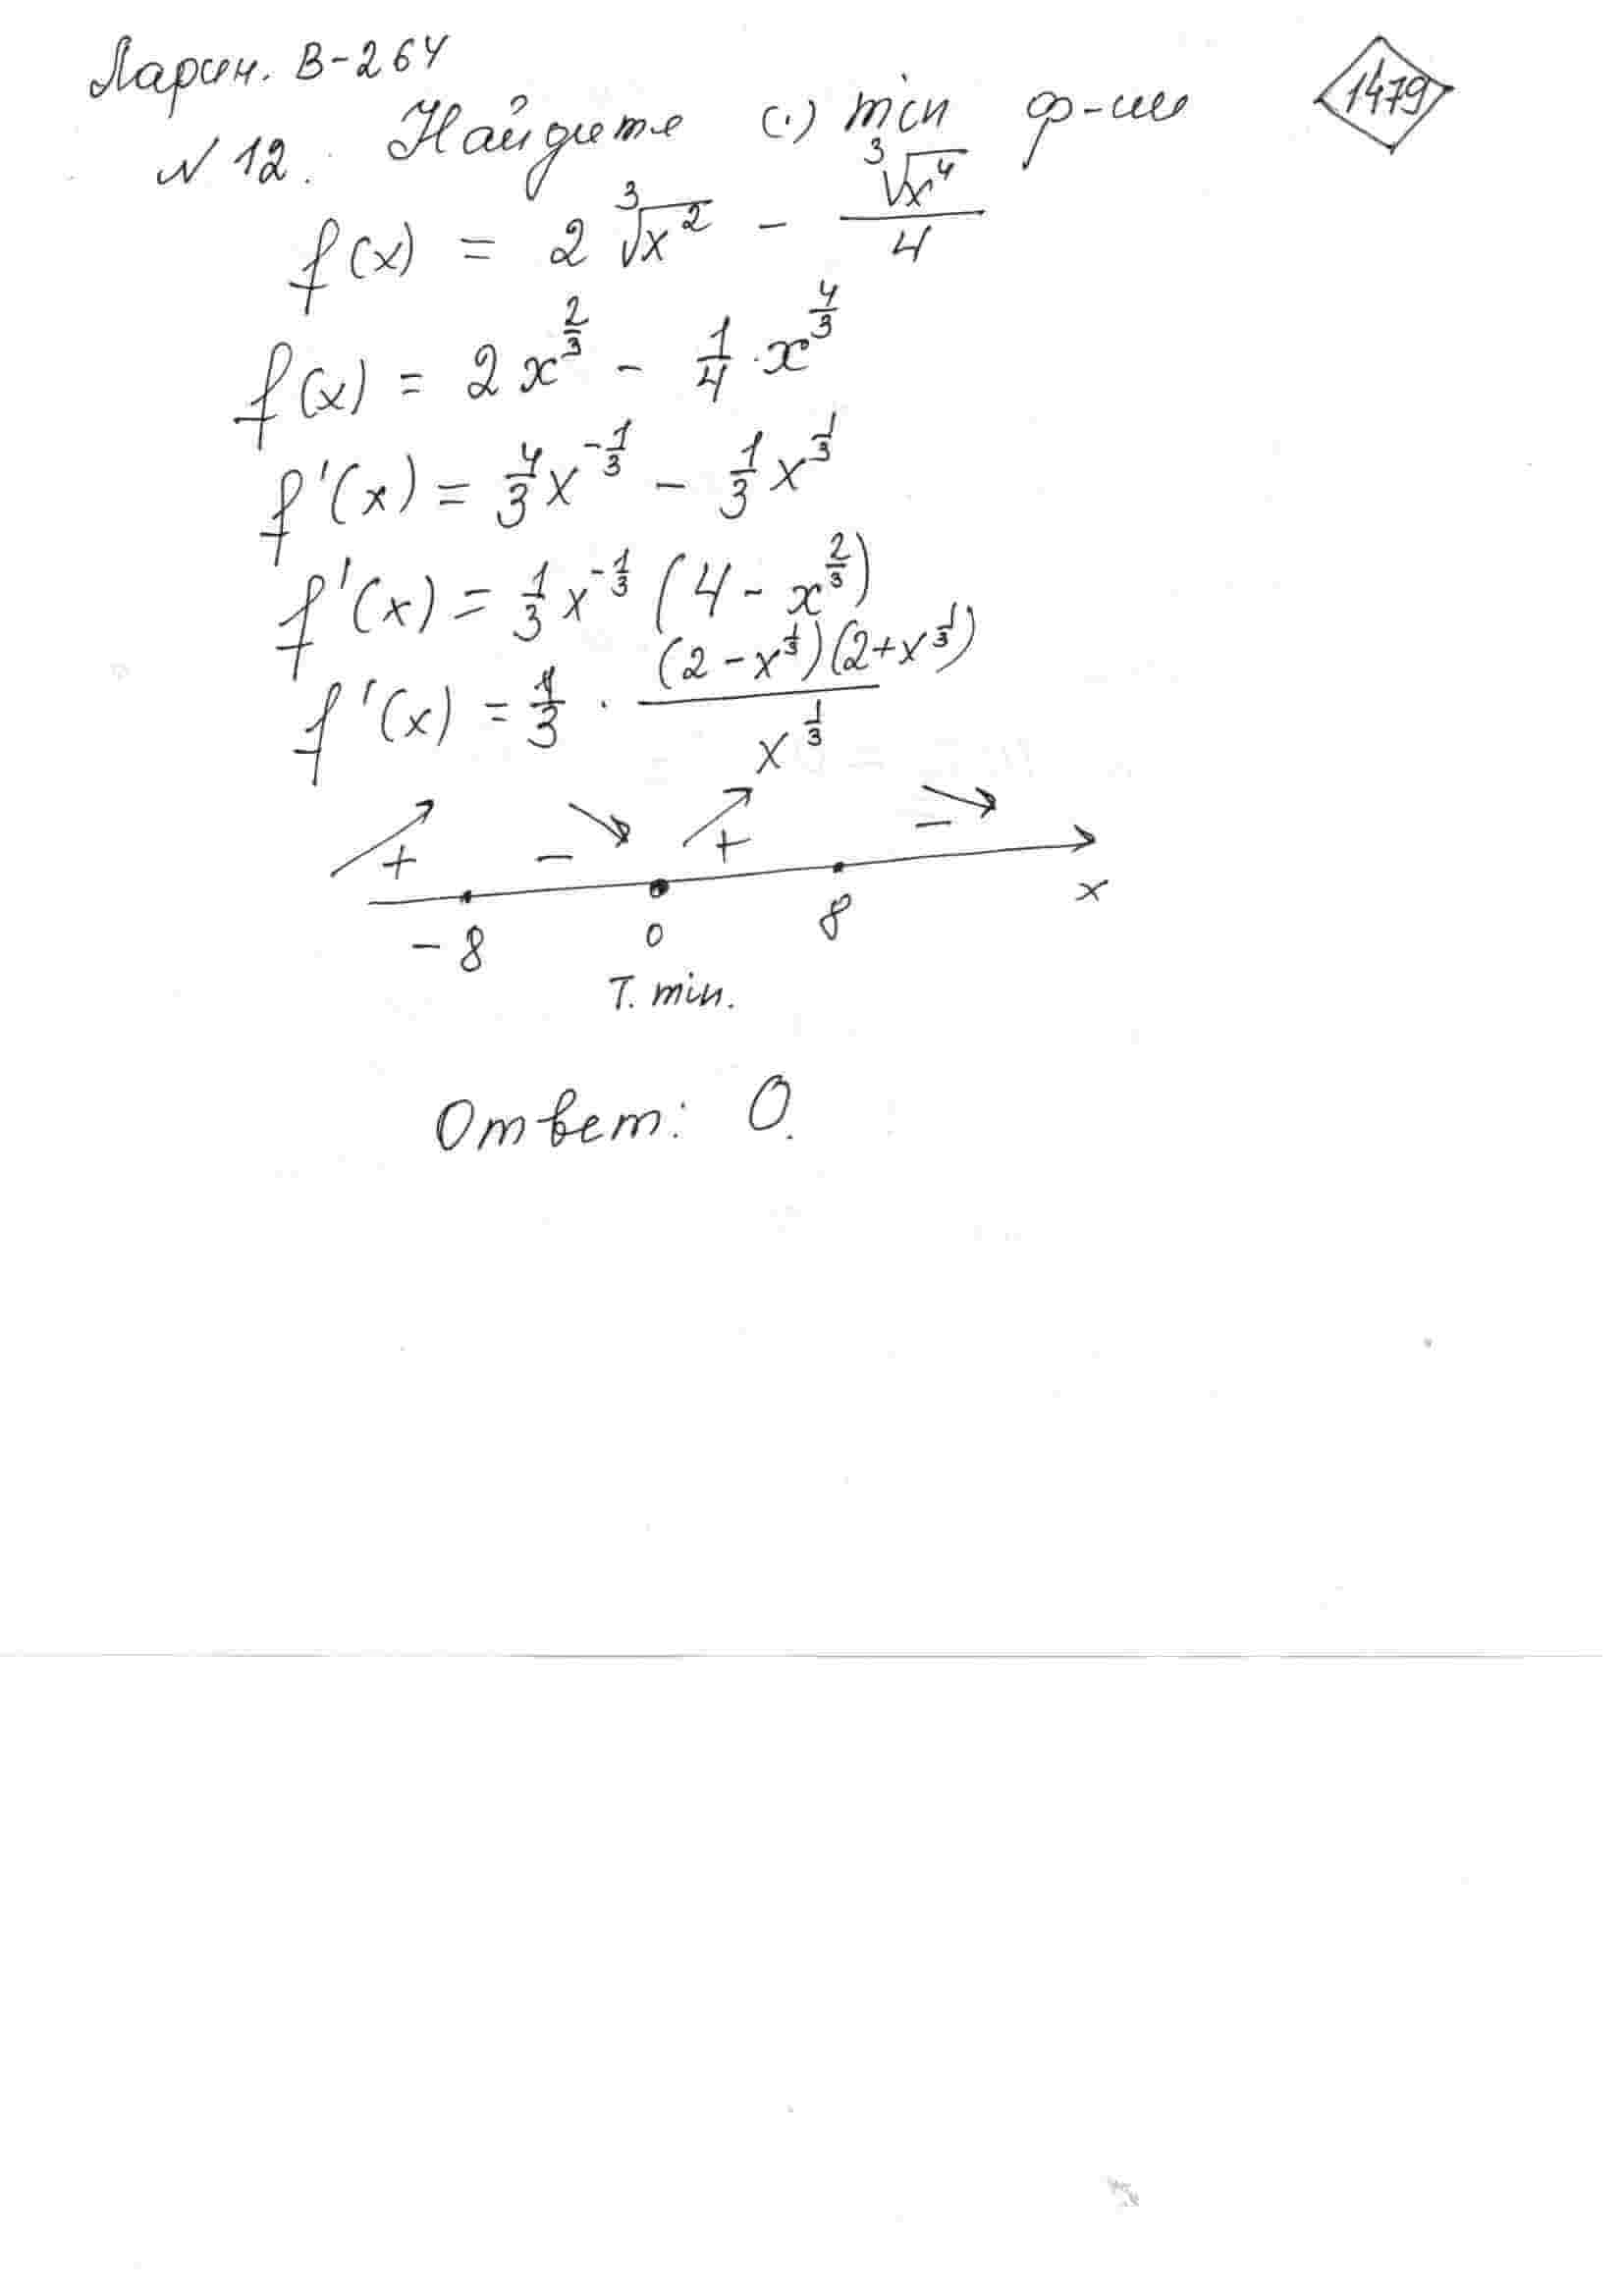 Ларин. В-264
1479
№ 12. Найдите (·) min ф-ии
f(x) = 2 ∛x² - ∛x⁴/4
f(x) = 2x^(2/3) - 1/4 · x^(4/3)
f'(x) = 4/3 x^(-1/3) - 1/3 x^(1/3)
f'(x) = 1/3 x^(-1/3) (4 - x^(2/3))
f'(x) = 1/3 · (2 - x^(1/3))(2 + x^(1/3)) / x^(1/3)
+ - + -
-8 0 8 x
т. min.
Ответ: 0.